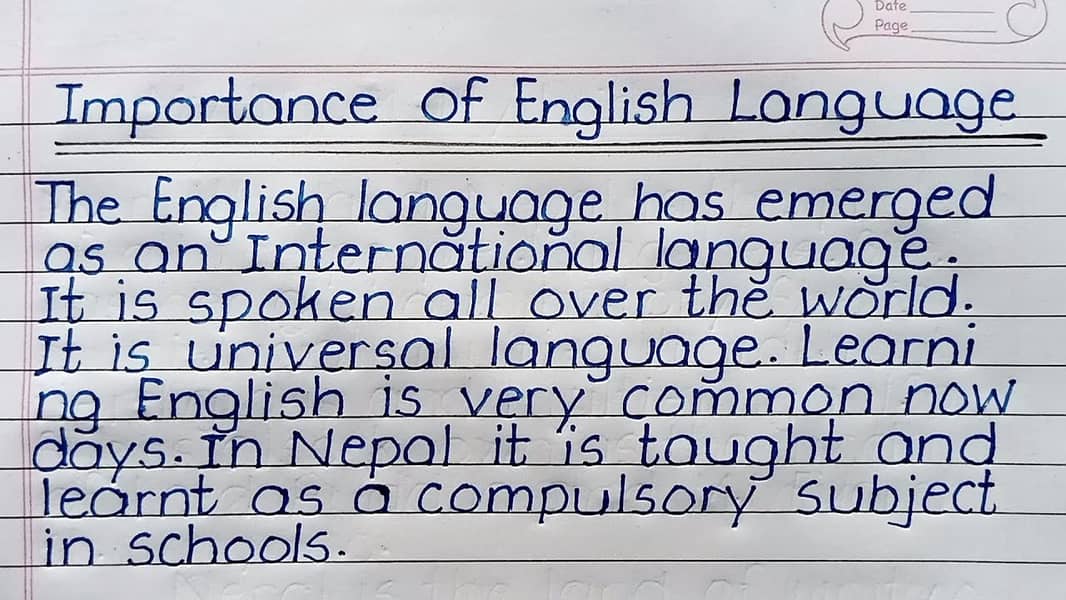 Date
Page
Importance of English Language
The English language has emerged
as an International language.
It is spoken all over the world.
It is universal language. Learni
ng English is very common now
days. In Nepal it is taught and
learnt as a compulsory subject
in schools.